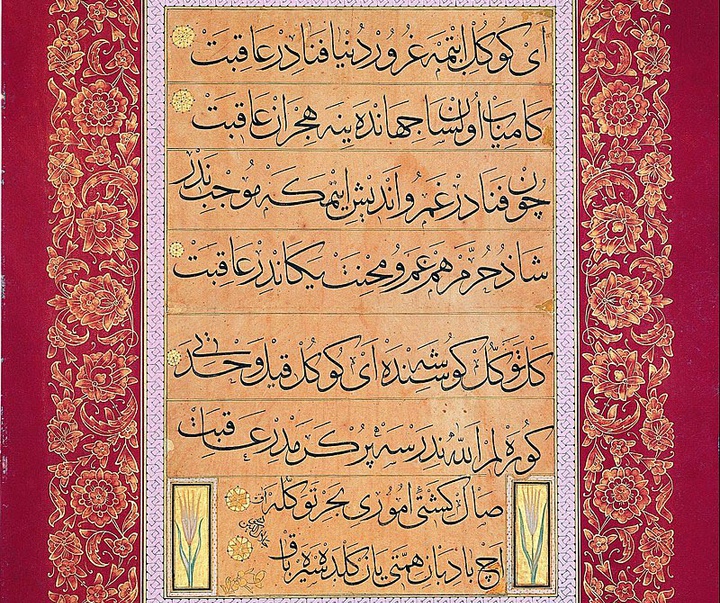 ای کوکل ایتمه غرور دنیا فنادر عاقبت
کامیاب اولسان جهانده ینه هجران عاقبت
چون فنادر غم و اندیش ایتمکه موجب ندر
شاذ خرم هم غم و محنت یکاندر عاقبت
کل توکل کوشه سنده ای کوکل قیل وحدتی
کوره لم الله ندر سه پر کرمدر عاقبت
صال کشتئ اموری بحر توکله
اچ بادبان همتی یان کلده